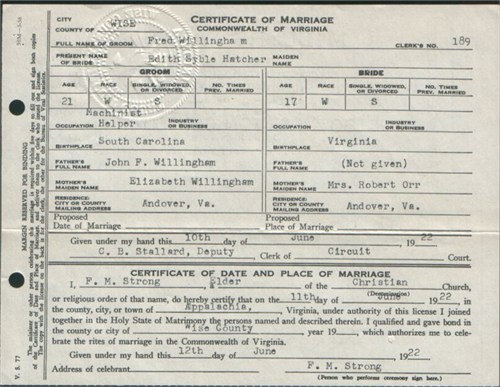 CITY
COUNTY OF WISE
CERTIFICATE OF MARRIAGE
COMMONWEALTH OF VIRGINIA
FULL NAME OF GROOM Fred Willingha m CLERK'S NO. 189
PRESENT NAME OF BRIDE Edith Syble Hatcher MAIDEN NAME
GROOM BRIDE
AGE RACE SINGLE, WIDOWED OR DIVORCED NO. TIMES PREV. MARRIED AGE RACE SINGLE, WIDOWED OR DIVORCED NO. TIMES PREV. MARRIED
21 W S 17 W S
OCCUPATION Machinist Helper INDUSTRY OR BUSINESS OCCUPATION INDUSTRY OR BUSINESS
BIRTHPLACE South Carolina BIRTHPLACE Virginia
FATHER'S FULL NAME John F. Willingham FATHER'S FULL NAME (Not given)
MOTHER'S MAIDEN NAME Elizabeth Willingham MOTHER'S MAIDEN NAME Mrs. Robert Orr
RESIDENCE: CITY OR COUNTY MAILING ADDRESS Andover, Va. RESIDENCE: CITY OR COUNTY MAILING ADDRESS Andover, Va.
Proposed Date of Marriage Proposed Place of Marriage
Given under my hand this 10th day of June , 1922
C. B. Stallard, Deputy Clerk of Circuit Court.
CERTIFICATE OF DATE AND PLACE OF MARRIAGE
I, F. M. Strong , Elder of the Christian Church,
(Denomination)
or religious order of that name, do hereby certify that on the 11th day of June , 1922
in the county, city, or town of Appalachia, Virginia, under authority of this license I joined
together in the Holy State of Matrimony the persons named and described therein. I qualified and gave bond in
the county or city of Wise County year 19 , which authorizes me to cele-
brate the rites of marriage in the Commonwealth of Virginia.
Given under my hand this 12th day of June 1922
Address of celebrant F. M. Strong
(Person who performs ceremony sign here)
MARGIN RESERVED FOR BINDING
V. S. 77